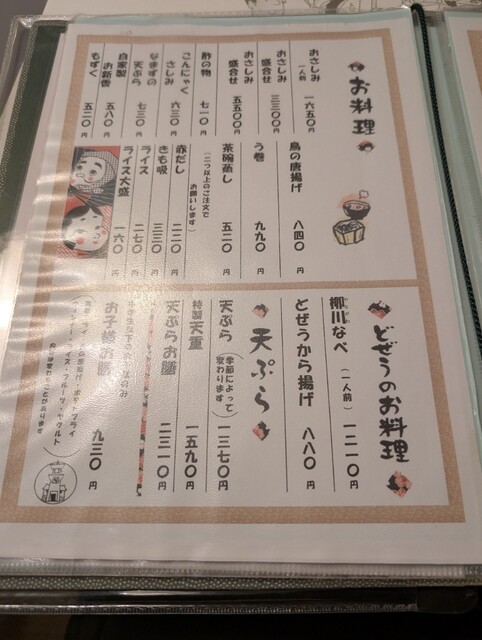 お料理
おさしみ 一人前 一六五〇円
おさしみ盛合せ 三三〇〇円
おさしみ盛合せ 五五〇〇円
酢の物 七一〇円
こんにゃくさしみ 六三〇円
なまずの天ぷら 七三〇円
自家製お新香 五八〇円
もずく 五二〇円
鳥の唐揚げ 八四〇円
う巻 九九〇円
茶碗蒸し 五二〇円
(二つ以上のご注文でお願いします)
赤だし 二二〇円
きも吸 三三〇円
ライス 二七〇円
ライス大盛 一六〇円
どぜうのお料理
柳川なべ (一人前) 一二一〇円
どぜうから揚げ 八八〇円
天ぷら
天ぷら (季節によって変わります) 一三七〇円
特製天重 一五九〇円
天ぷらお膳 二三一〇円
お子様お膳 九三〇円